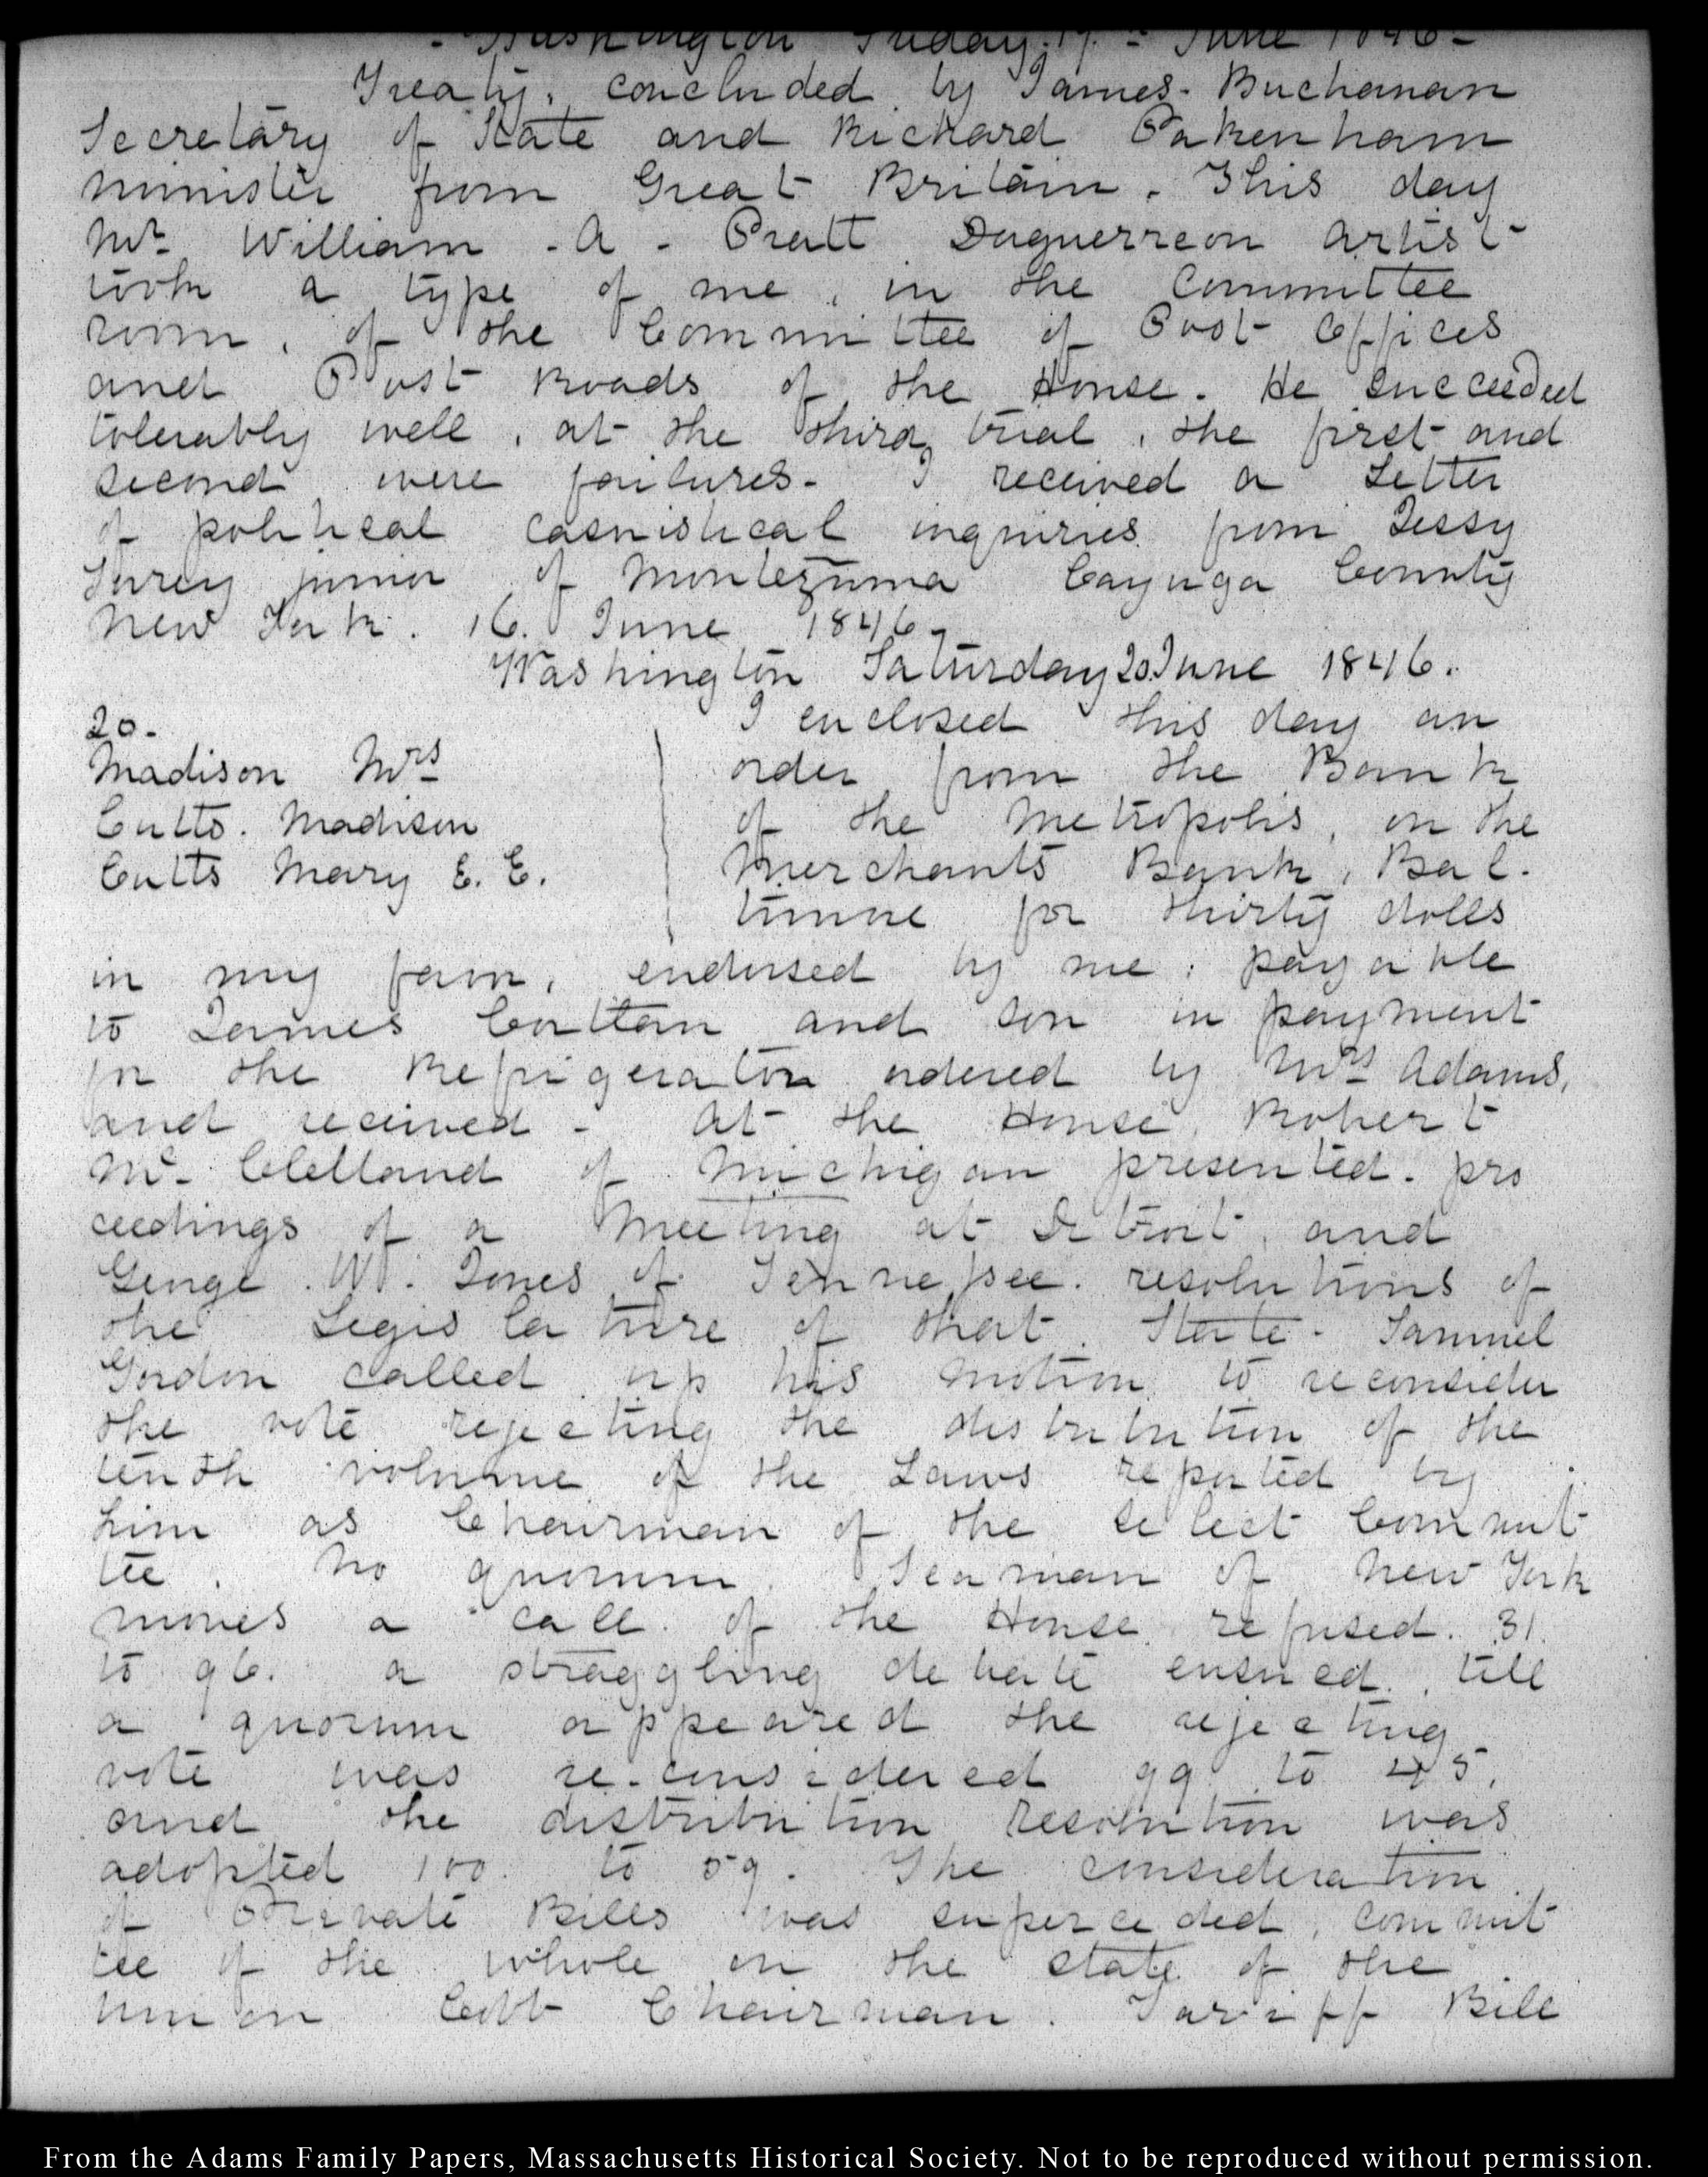 - Washington Friday. 19. - June 1846 -
Treaty, concluded by James. Buchanan
Secretary of State and Richard Pakenham
minister from Great Britain. This day
Mr William - A - Pratt Daguerreon artist
took a type of me, in the Committee
room, of the Committee of Post Offices
and Post Roads of the House. He succeeded
tolerably well, at the third trial, the first and
second were failures - I received a Letter
of political casuistical inquiries from Jessy
junior of Montezuma Cayuga County
New York. 16. June 1846 -
Washington Saturday 20. June 1846.
20.
Madison Mrs
Cutts. Madison
Cutts Mary E. E.
I enclosed this day an
order from the Bank
of the Metropolis, on the
Merchants Bank, Bal.
timore for thirty dolls
in my favor, endorsed by me, payable
to James and son in payment
for the Refrigerator ordered by Mrs Adams,
and received - At the House Robert
Mc Clelland of Michigan presented. pro
ceedings of a Meeting at Detroit, and
George. W. Jones of Tennessee. resolutions of
the Legislature of that State - Samuel
Gordon called up his motion to reconsider
the vote rejecting the distribution of the
tenth volume of the Laws reported by
him as Chairman of the select Commit
tee. No quorum. Seaman of New York
moves a call of the House refused. 31.
to 96. a straggling debate ensued, till
a quorum appeared the rejecting
vote was re-considered 99 to 45,
and the distribution resolution was
adopted 100 to 59. The consideration
of Private Bills was superceded, commit
tee of the whole on the state of the
union Cobb Chairman. Tariff Bill
From the Adams Family Papers, Massachusetts Historical Society. Not to be reproduced without permission.